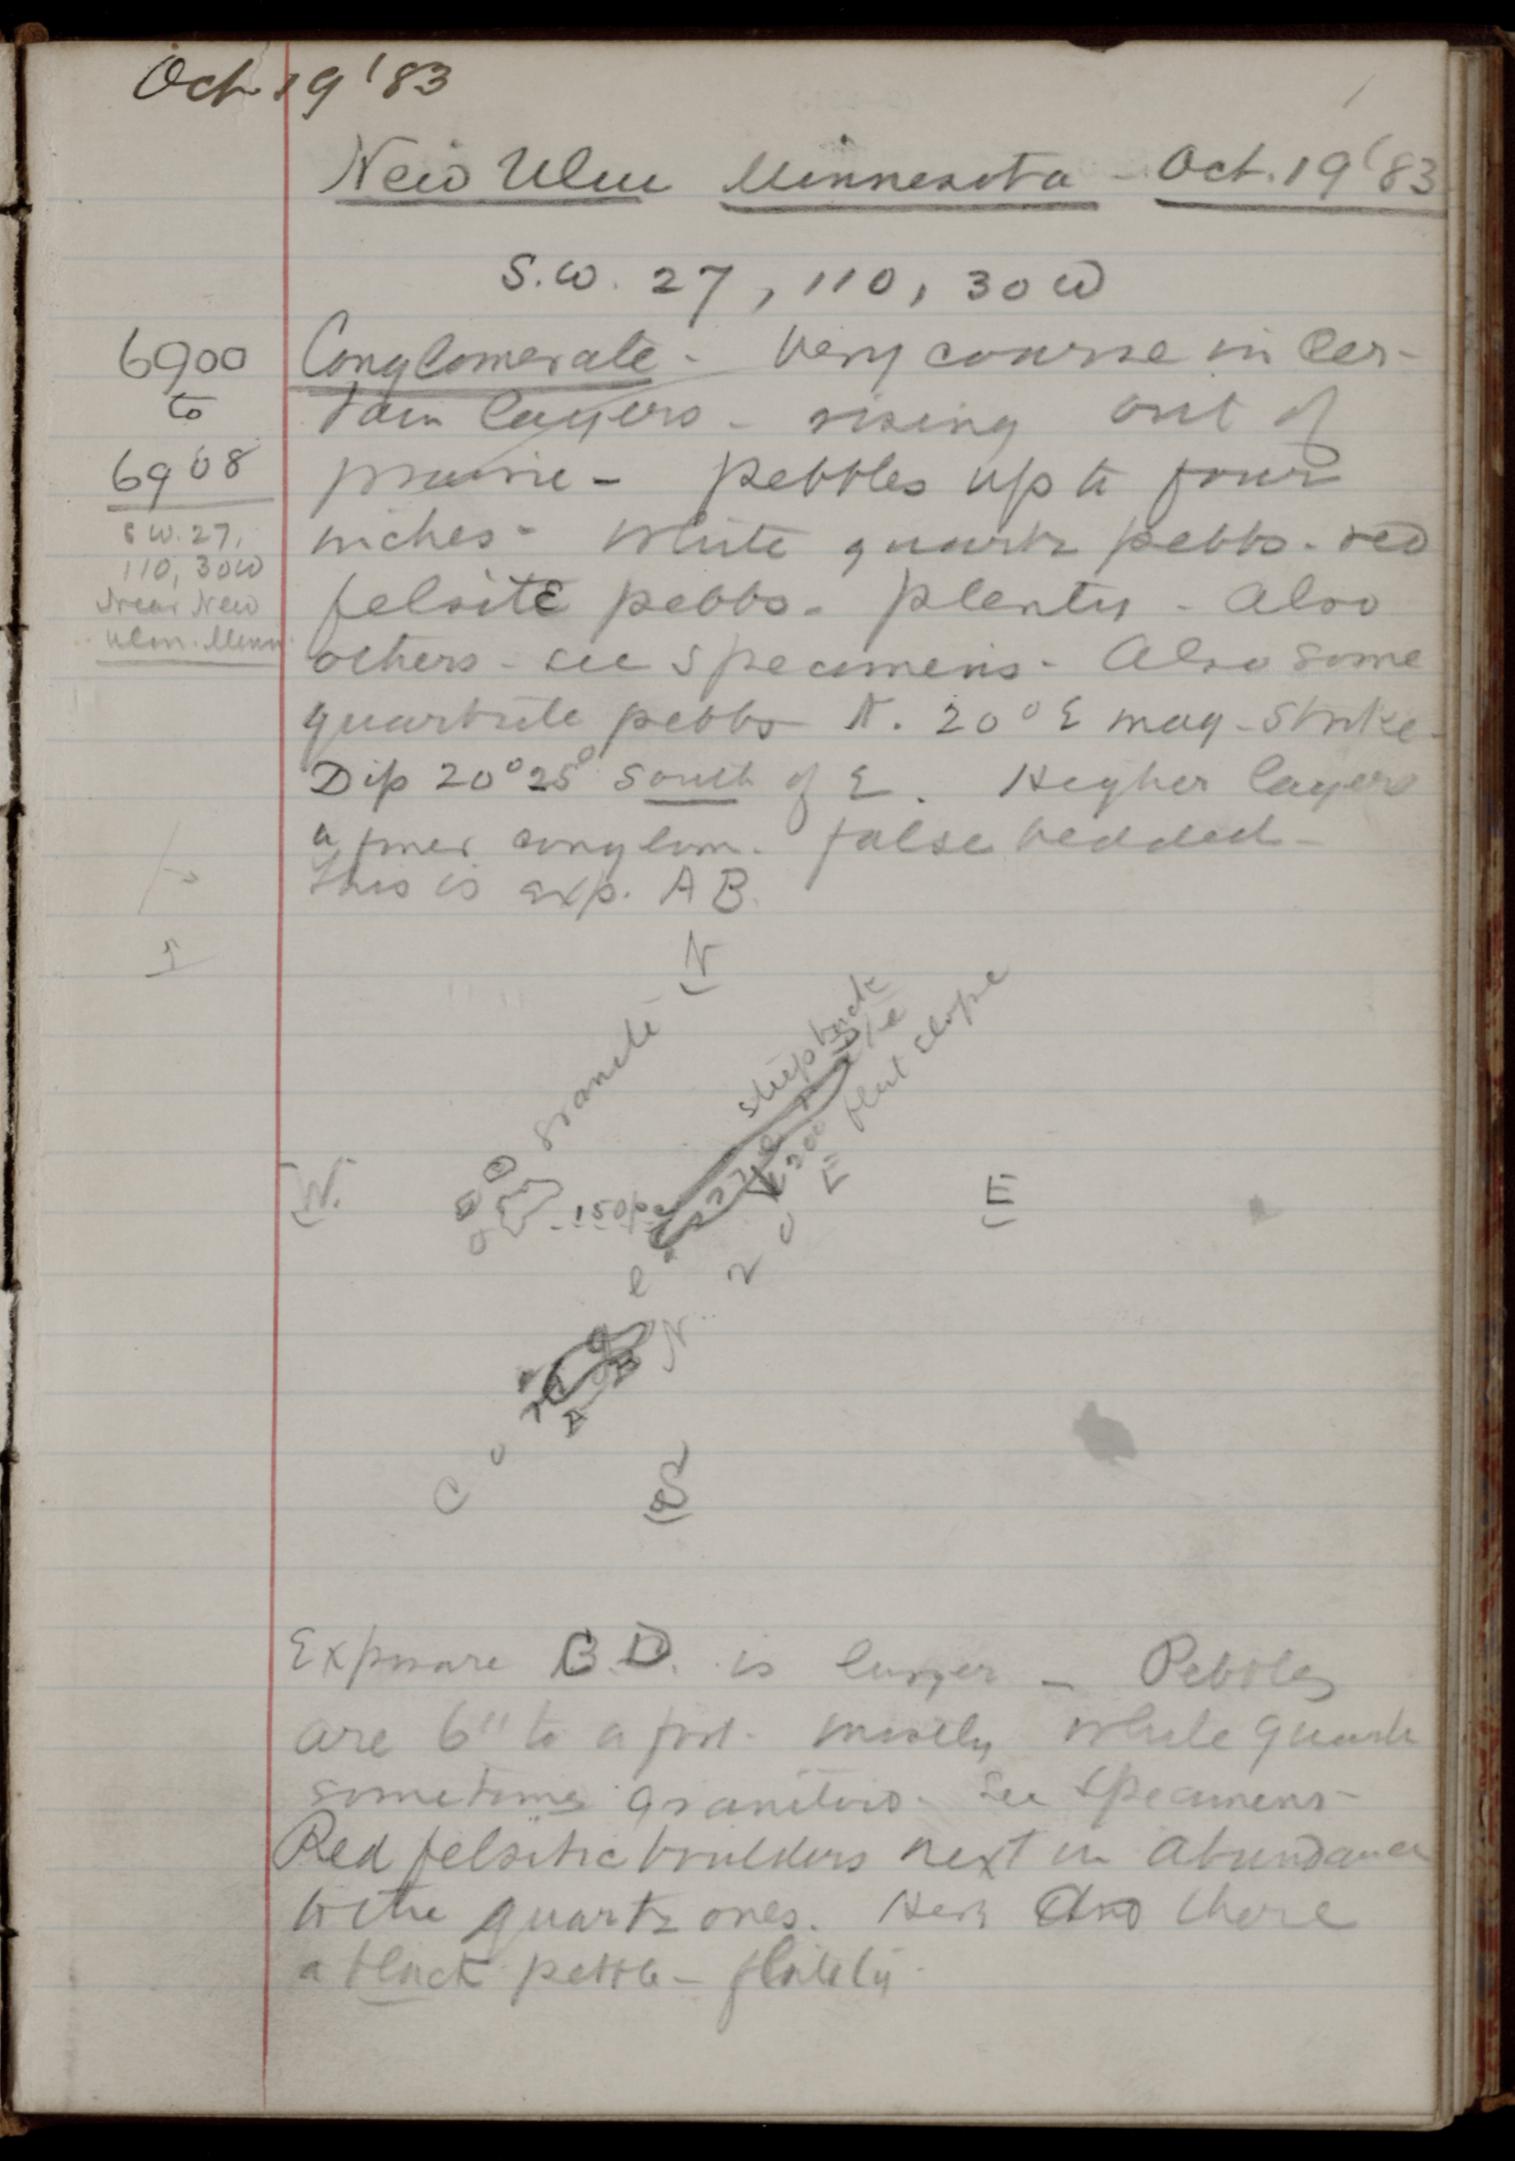 Oct. 19 '83
New Ulm Minnesota - Oct. 19 '83
S.W. 27, 110, 30 W
6900
to
6908
S W. 27,
110, 30 W
Near New
Ulm. Minn.
Conglomerate - Very coarse in cer-
tain layers - rising out of
prairie - pebbles up to four
inches - White quartz pebbs. red
felsite pebbs. plenty - Also
others - see specimens - Also some
quartzite pebbs N. 20° E mag - Strike -
Dip 20° 25° South of E. Higher layers
a finer conglom. false bedded -
This is exp. A B.
N
granite
steep back
flat slope
W.
150
200
E
E
A
B
C
S
Exposure C.D. is larger - Pebbles
are 6" to a foot. mostly white quartz
sometimes granitoid - See specimens -
Red felsitic boulders next in abundance
to the quartz ones. Here and there
a black pebble -